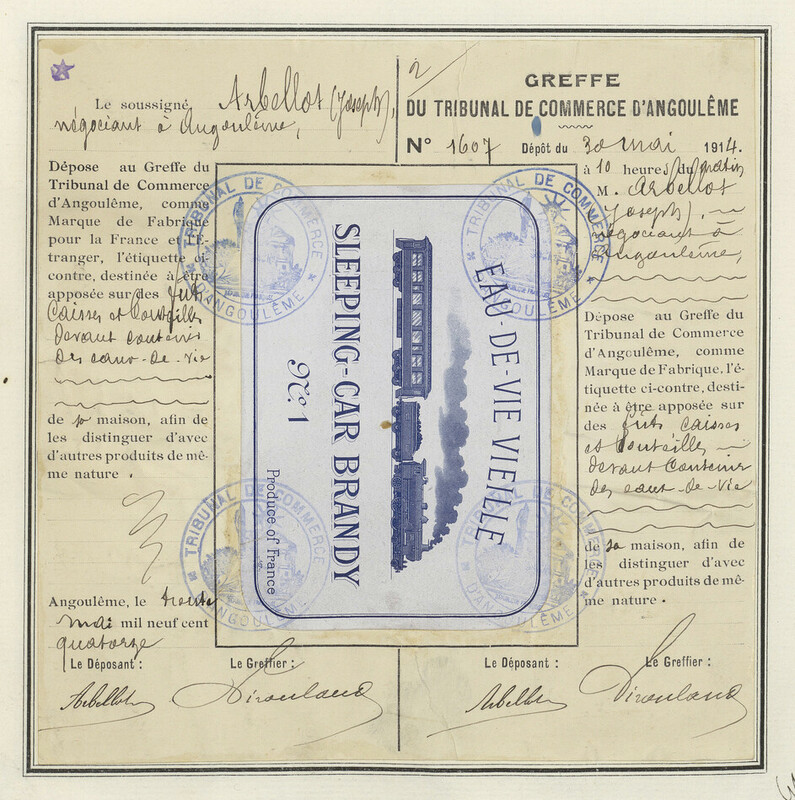 Le soussigné, Arbellot (Joseph),
négociant à Angoulême,
Dépose au Greffe du
Tribunal de Commerce
d'Angoulême, comme
Marque de Fabrique
pour la France et l'É-
tranger, l'étiquette ci-
contre, destinée à être
apposée sur des fûts
caisses et bouteilles
devant contenir
des eaux-de-vie
de sa maison, afin de
les distinguer d'avec
d'autres produits de mê-
me nature.
Angoulême, le trente
mai mil neuf cent
quatorze
Le Déposant :
Le Greffier :
Arbellot
EAU-DE-VIE VIEILLE
SLEEPING-CAR BRANDY
No. 1
Produce of France
TRIBUNAL DE COMMERCE
D'ANGOULÊME
TRIBUNAL DE COMMERCE
D'ANGOULÊME
TRIBUNAL DE COMMERCE
D'ANGOULÊME
TRIBUNAL DE COMMERCE
D'ANGOULÊME
2
GREFFE
DU TRIBUNAL DE COMMERCE D'ANGOULÊME
N° 1607 Dépôt du 30 mai 1914.
à 10 heures du matin
M. Arbellot
(Joseph),
négociant à
Angoulême,
Dépose au Greffe du
Tribunal de Commerce
d'Angoulême, comme
Marque de Fabrique, l'é-
tiquette ci-contre, desti-
née à être apposée sur
des fûts caisses
et bouteilles
devant contenir
des eaux-de-vie
de sa maison, afin de
les distinguer d'avec
d'autres produits de mê-
me nature.
Le Déposant :
Le Greffier :
Arbellot